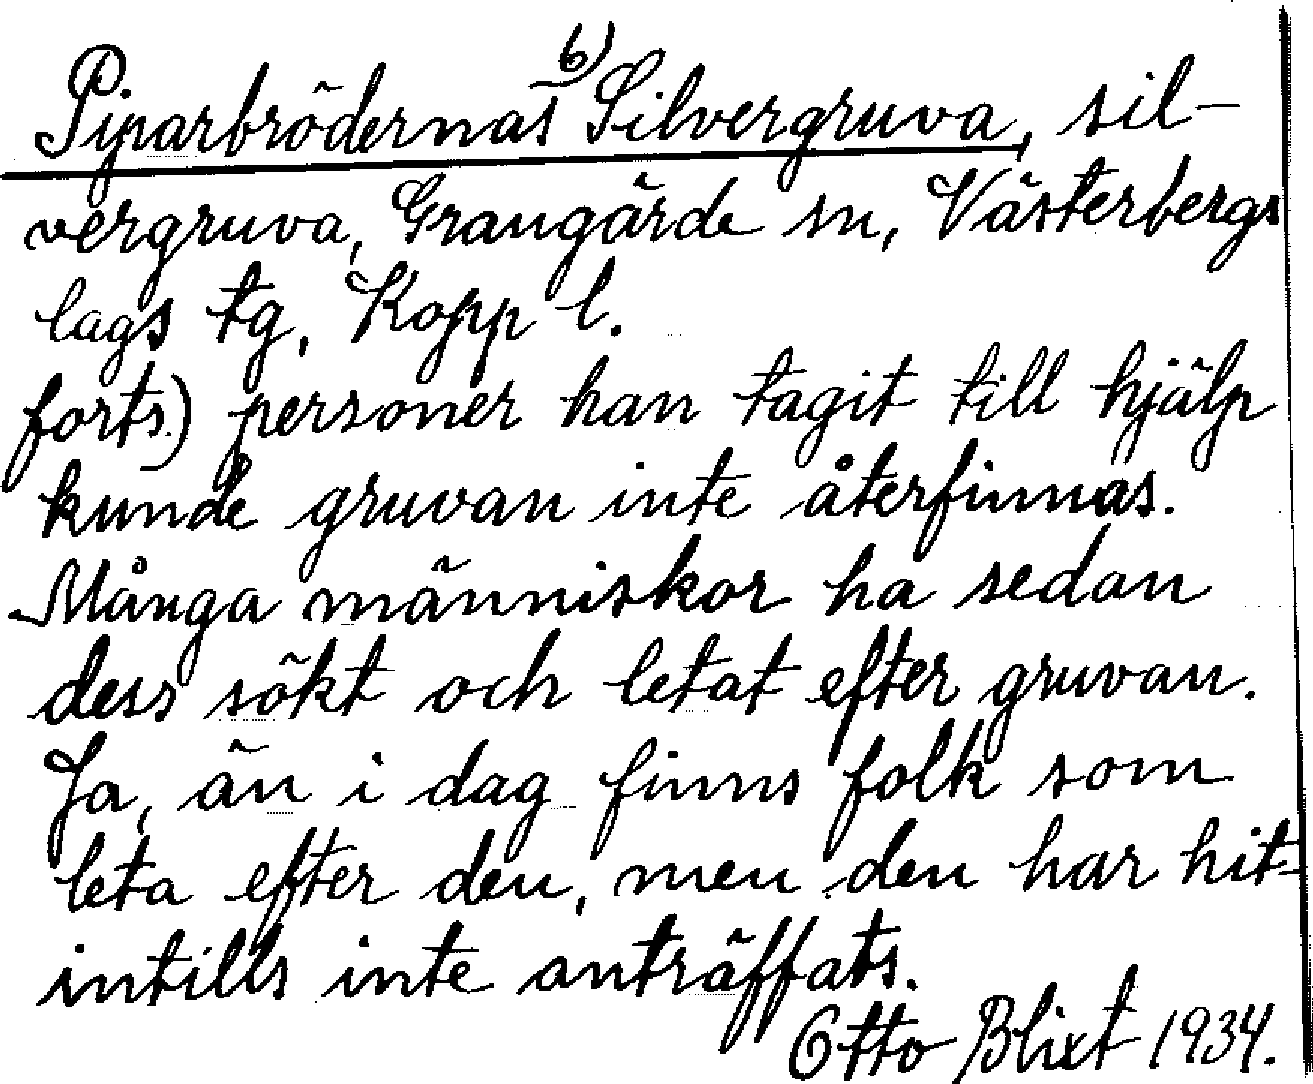 Piparbrödernas 6) Silvergruva, sil-
vergruva, Grangärde sn, Västerbergs
lags tg, Kopp l.
forts.) personer han tagit till hjälp
kunde gruvan inte återfinnas.
Många människor ha sedan
dess sökt och letat efter gruvan.
Ja, än i dag finns folk som
leta efter den, men den har hit-
intills inte anträffats.
Otto Blixt 1934.